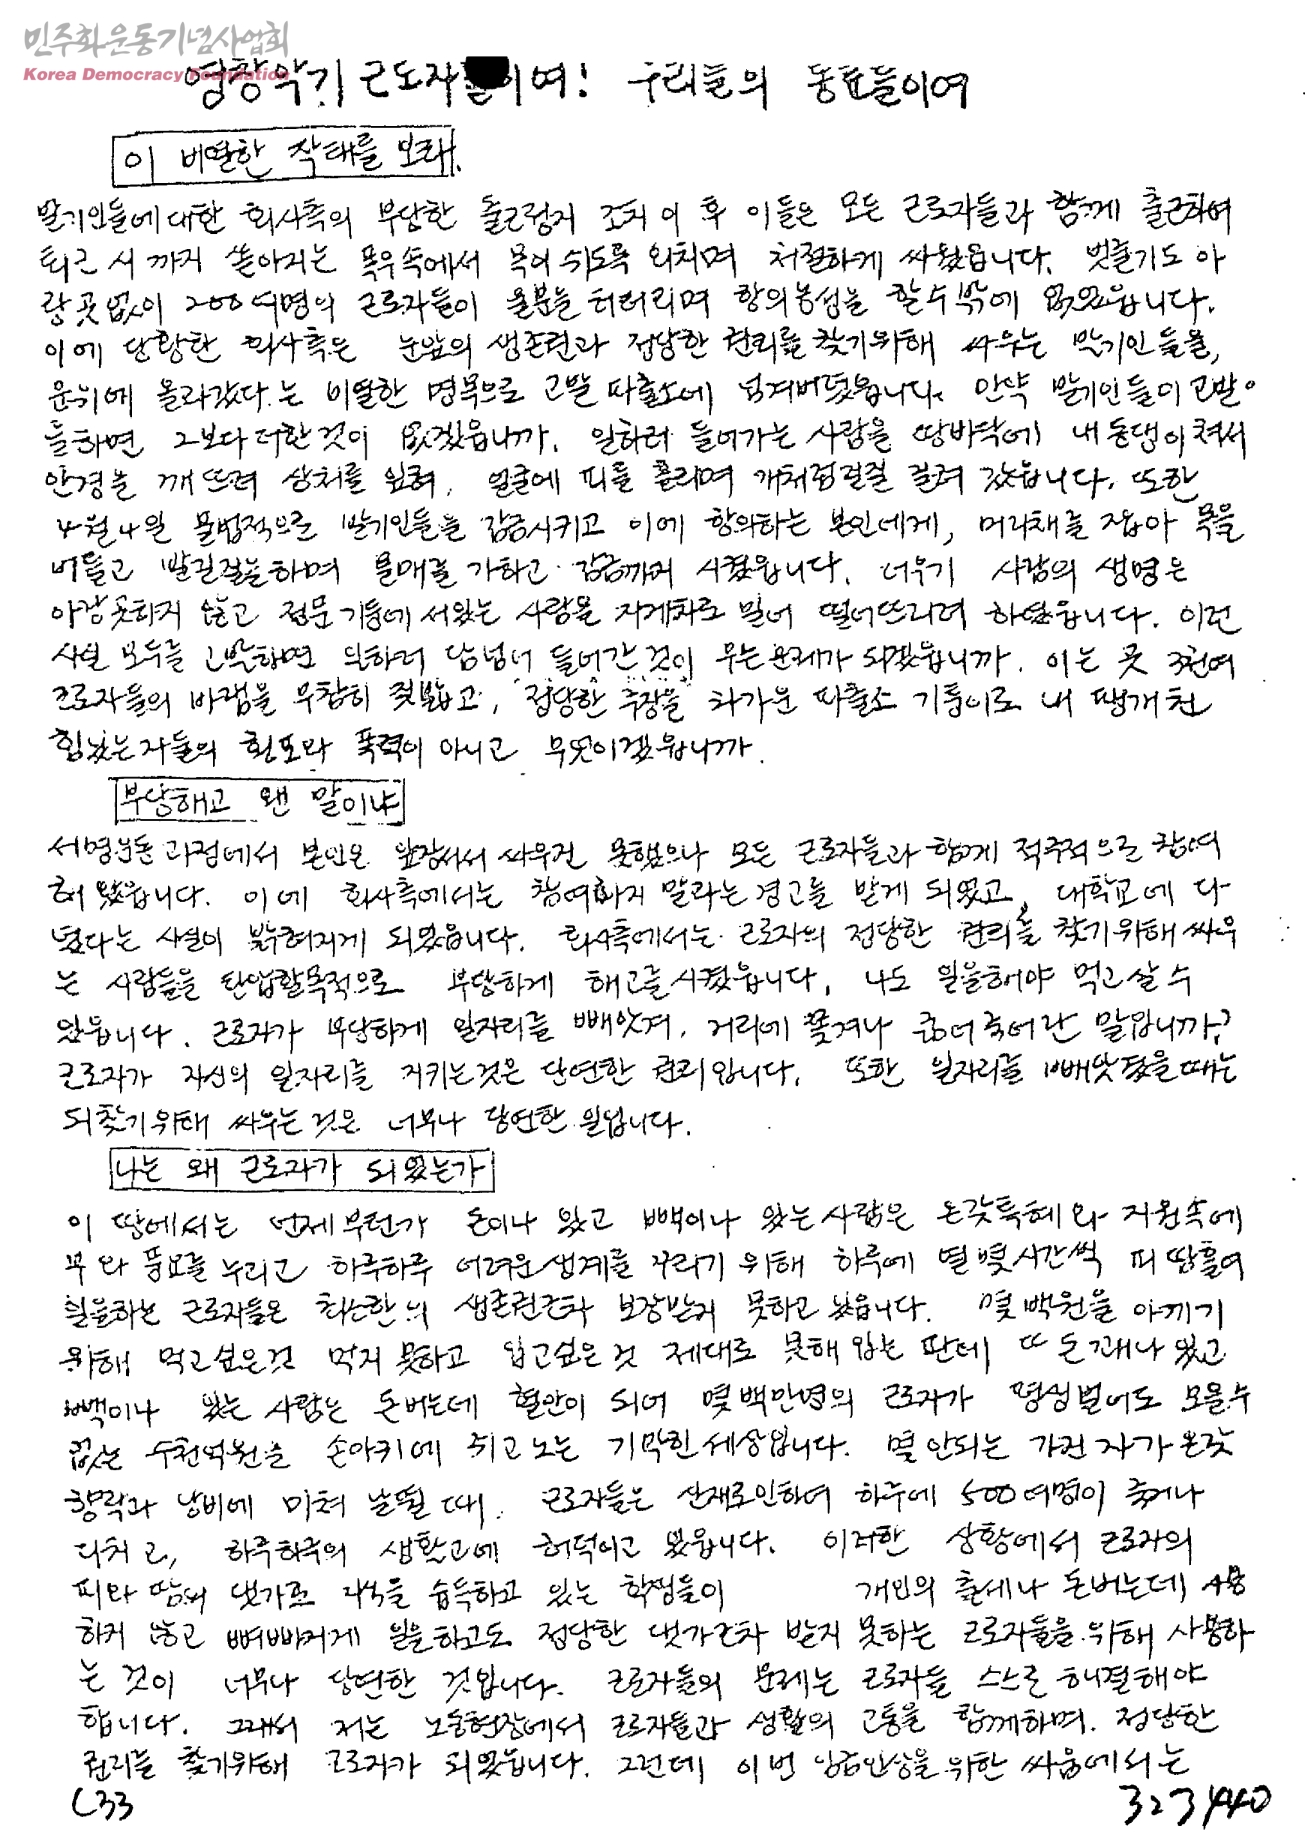 민주화운동기념사업회
Korea Democracy Foundation
영창악기 근로자들이여! 우리들의 동료들이여
이 비열한 작태를 보라.
발기인들에 대한 회사측의 부당한 출근정지 조치 이후 이들은 모든 근로자들과 함께 출근하여
퇴근시까지 쏟아지는 폭우속에서 목이 쉬도록 외치며 처절하게 싸웠읍니다. 빗줄기도 아
랑곳없이 200여명의 근로자들이 울분을 터터리며 항의농성을 할수밖에 없었읍니다.
이에 당황한 회사측은 눈앞의 생존권과 정당한 권리를 찾기위해 싸우는 발기인들을,
문위에 올라갔다는 비열한 명목으로 고발 파출소에 넘겨버렸읍니다. 만약 발기인들이 고발
들하면 그보다 더한것이 없겠읍니까. 일하러 들어가는 사람을 땅바닥에 내동댕이쳐서
안경을 깨뜨려 상처를 입혀, 얼굴에 피를 흘리며 개처럼 질질 끌려 갔읍니다. 또한
4월4일 불법적으로 발기인들을 감금시키고 이에 항의하는 본인에게, 머리채를 잡아 목을
비틀고 발길질을하며 몰매를 가하고 감금까지 시켰읍니다. 더우기 사람의 생명은
아랑곳하지 않고 정문 기둥에 서있는 사람을 지게차로 밀어 떨어뜨리려 하였읍니다. 이런
사실 모두를 고발하면 일하러 담넘어 들어간것이 무슨문제가 되겠읍니까. 이는 곧 3천여
근로자들의 바램을 무참히 짓밟고, 정당한 주장을 차가운 파출소 기둥이로 내 팽개친
힘있는자들의 횡포와 폭력이 아니고 무엇이겠읍니까.
부당해고 왠 말이냐
서명운동 과정에서 본인은 앞장서서 싸우진 못했으나 모든 근로자들과 함께 적극적으로 참여
해 왔읍니다. 이에 회사측에서는 참여하지 말라는 경고를 받게 되었고, 대학교에 다
녔다는 사실이 밝혀지게 되었읍니다. 회사측에서는 근로자의 정당한 권리를 찾기위해 싸우
는 사람들을 탄압할목적으로 부당하게 해고를 시켰읍니다. 나도 일을해야 먹고살 수
있읍니다. 근로자가 부당하게 일자리를 빼앗겨, 거리에 쫓겨나 굶어죽어란 말입니까?
근로자가 자신의 일자리를 지키는것은 당연한 권리입니다. 또한 일자리를 빼앗겼을때는
되찾기위해 싸우는 것은 너무나 당연한 일입니다.
나는 왜 근로자가 되었는가
이 땅에서는 언제부턴가 돈이나 있고 빽이나 있는 사람은 온갖특혜와 지원속에
부와 풍요를 누리고 하루하루 어려운생계를 꾸리기 위해 하루에 열몇시간씩 피땀흘려
일을하는 근로자들은 최소한의 생존권조차 보장받지 못하고 있읍니다. 몇백원을 아끼기
위해 먹고싶은것 먹지 못하고 입고싶은것 제대로 못해 입는 판데 또 돈깨나 있고
빽이나 있는 사람은 돈버는데 혈안이 되어 몇백만명의 근로자가 평생벌어도 모을수
없는 수천억원을 손아귀에 쥐고노는 기막힌세상입니다. 몇 안되는 가진자가 온갖
향락과 낭비에 미쳐 날뛸 때, 근로자들은 산재로인하여 하루에 500여명이 죽거나
다치고, 하루하루의 생활고에 허덕이고 있읍니다. 이러한 상황에서 근로자의
피와 땀의 댓가로 지식을 습득하고 있는 학생들이 개인의 출세나 돈버는데 사용
하지 않고 뼈빠지게 일을하고도 정당한 댓가조차 받지 못하는 근로자들을 위해 사용하
는 것이 너무나 당연한 것입니다. 근로자들의 문제는 근로자들 스스로 해결해야
합니다. 그래서 저는 노동현장에서 근로자들과 생활의 고통을 함께하며, 정당한
권리를 찾기위해 근로자가 되었읍니다. 그런데 이번 임금인상을 위한 싸움에서는
C33 323440